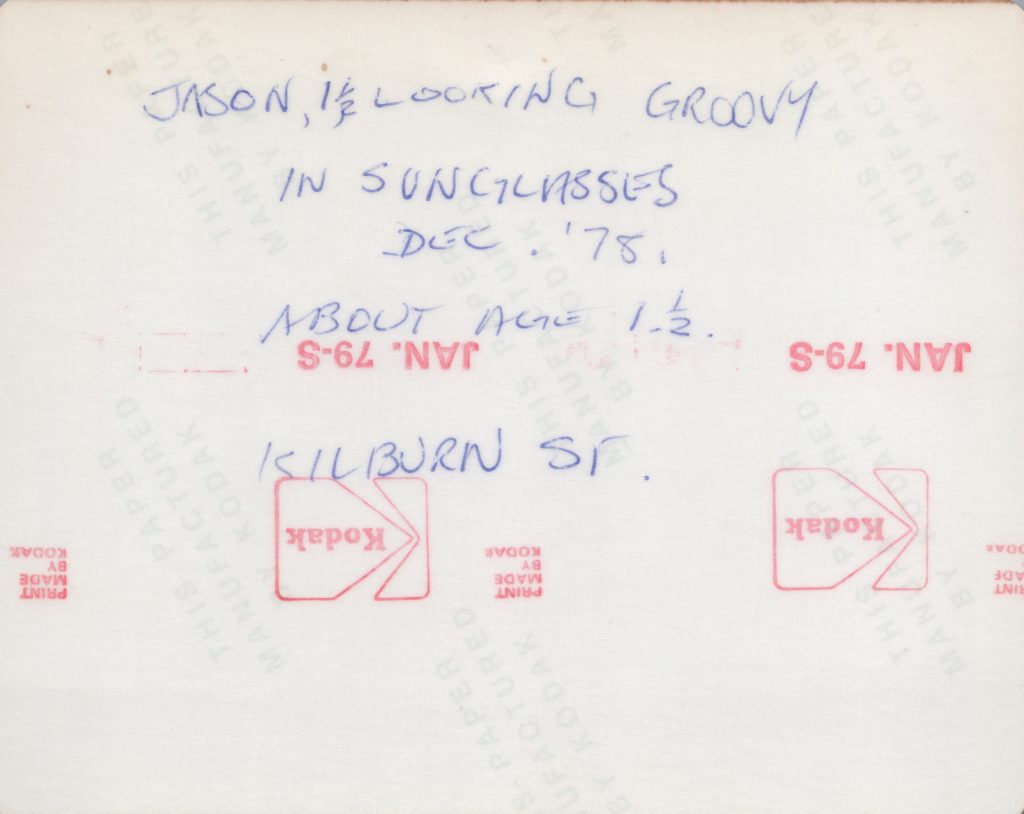 JASON, 1½ LOOKING GROOVY
IN SUNGLASSES
DEC. '78.
ABOUT AGE 1.½.
JAN. 79-S
JAN. 79-S
KILBURN ST.
Kodak
Kodak
PRINT
MADE
BY
KODAK
PRINT
MADE
BY
KODAK
THIS PAPER
MANUFACTURED
BY KODAK
THIS PAPER
MANUFACTURED
BY KODAK
THIS PAPER
MANUFACTURED
BY KODAK
THIS PAPER
MANUFACTURED
BY KODAK
THIS PAPER
MANUFACTURED
BY KODAK